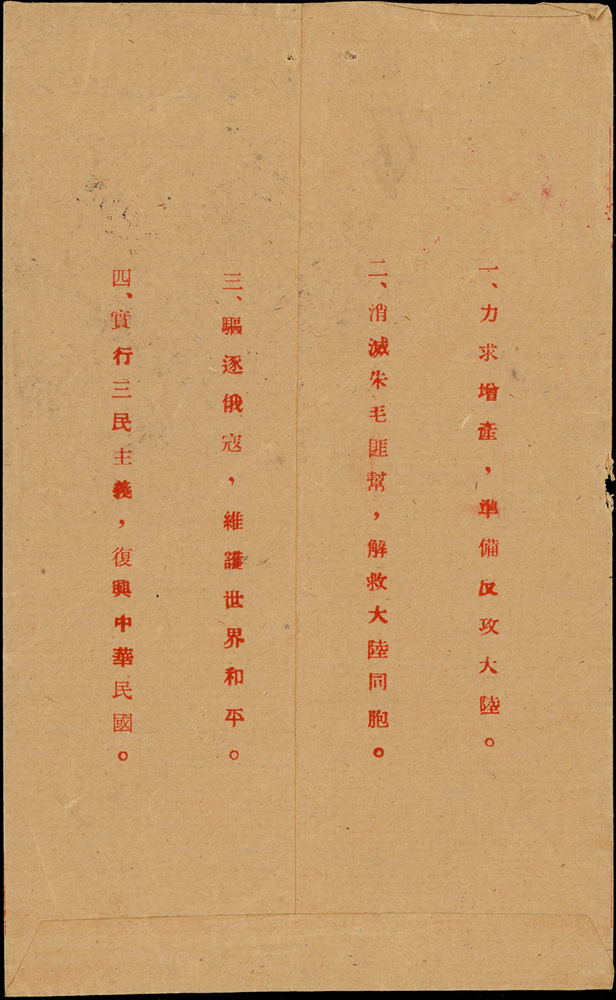 一、力求增產，準備反攻大陸。
二、消滅朱毛匪幫，解救大陸同胞。
三、驅逐俄寇，維護世界和平。
四、實行三民主義，復興中華民國。